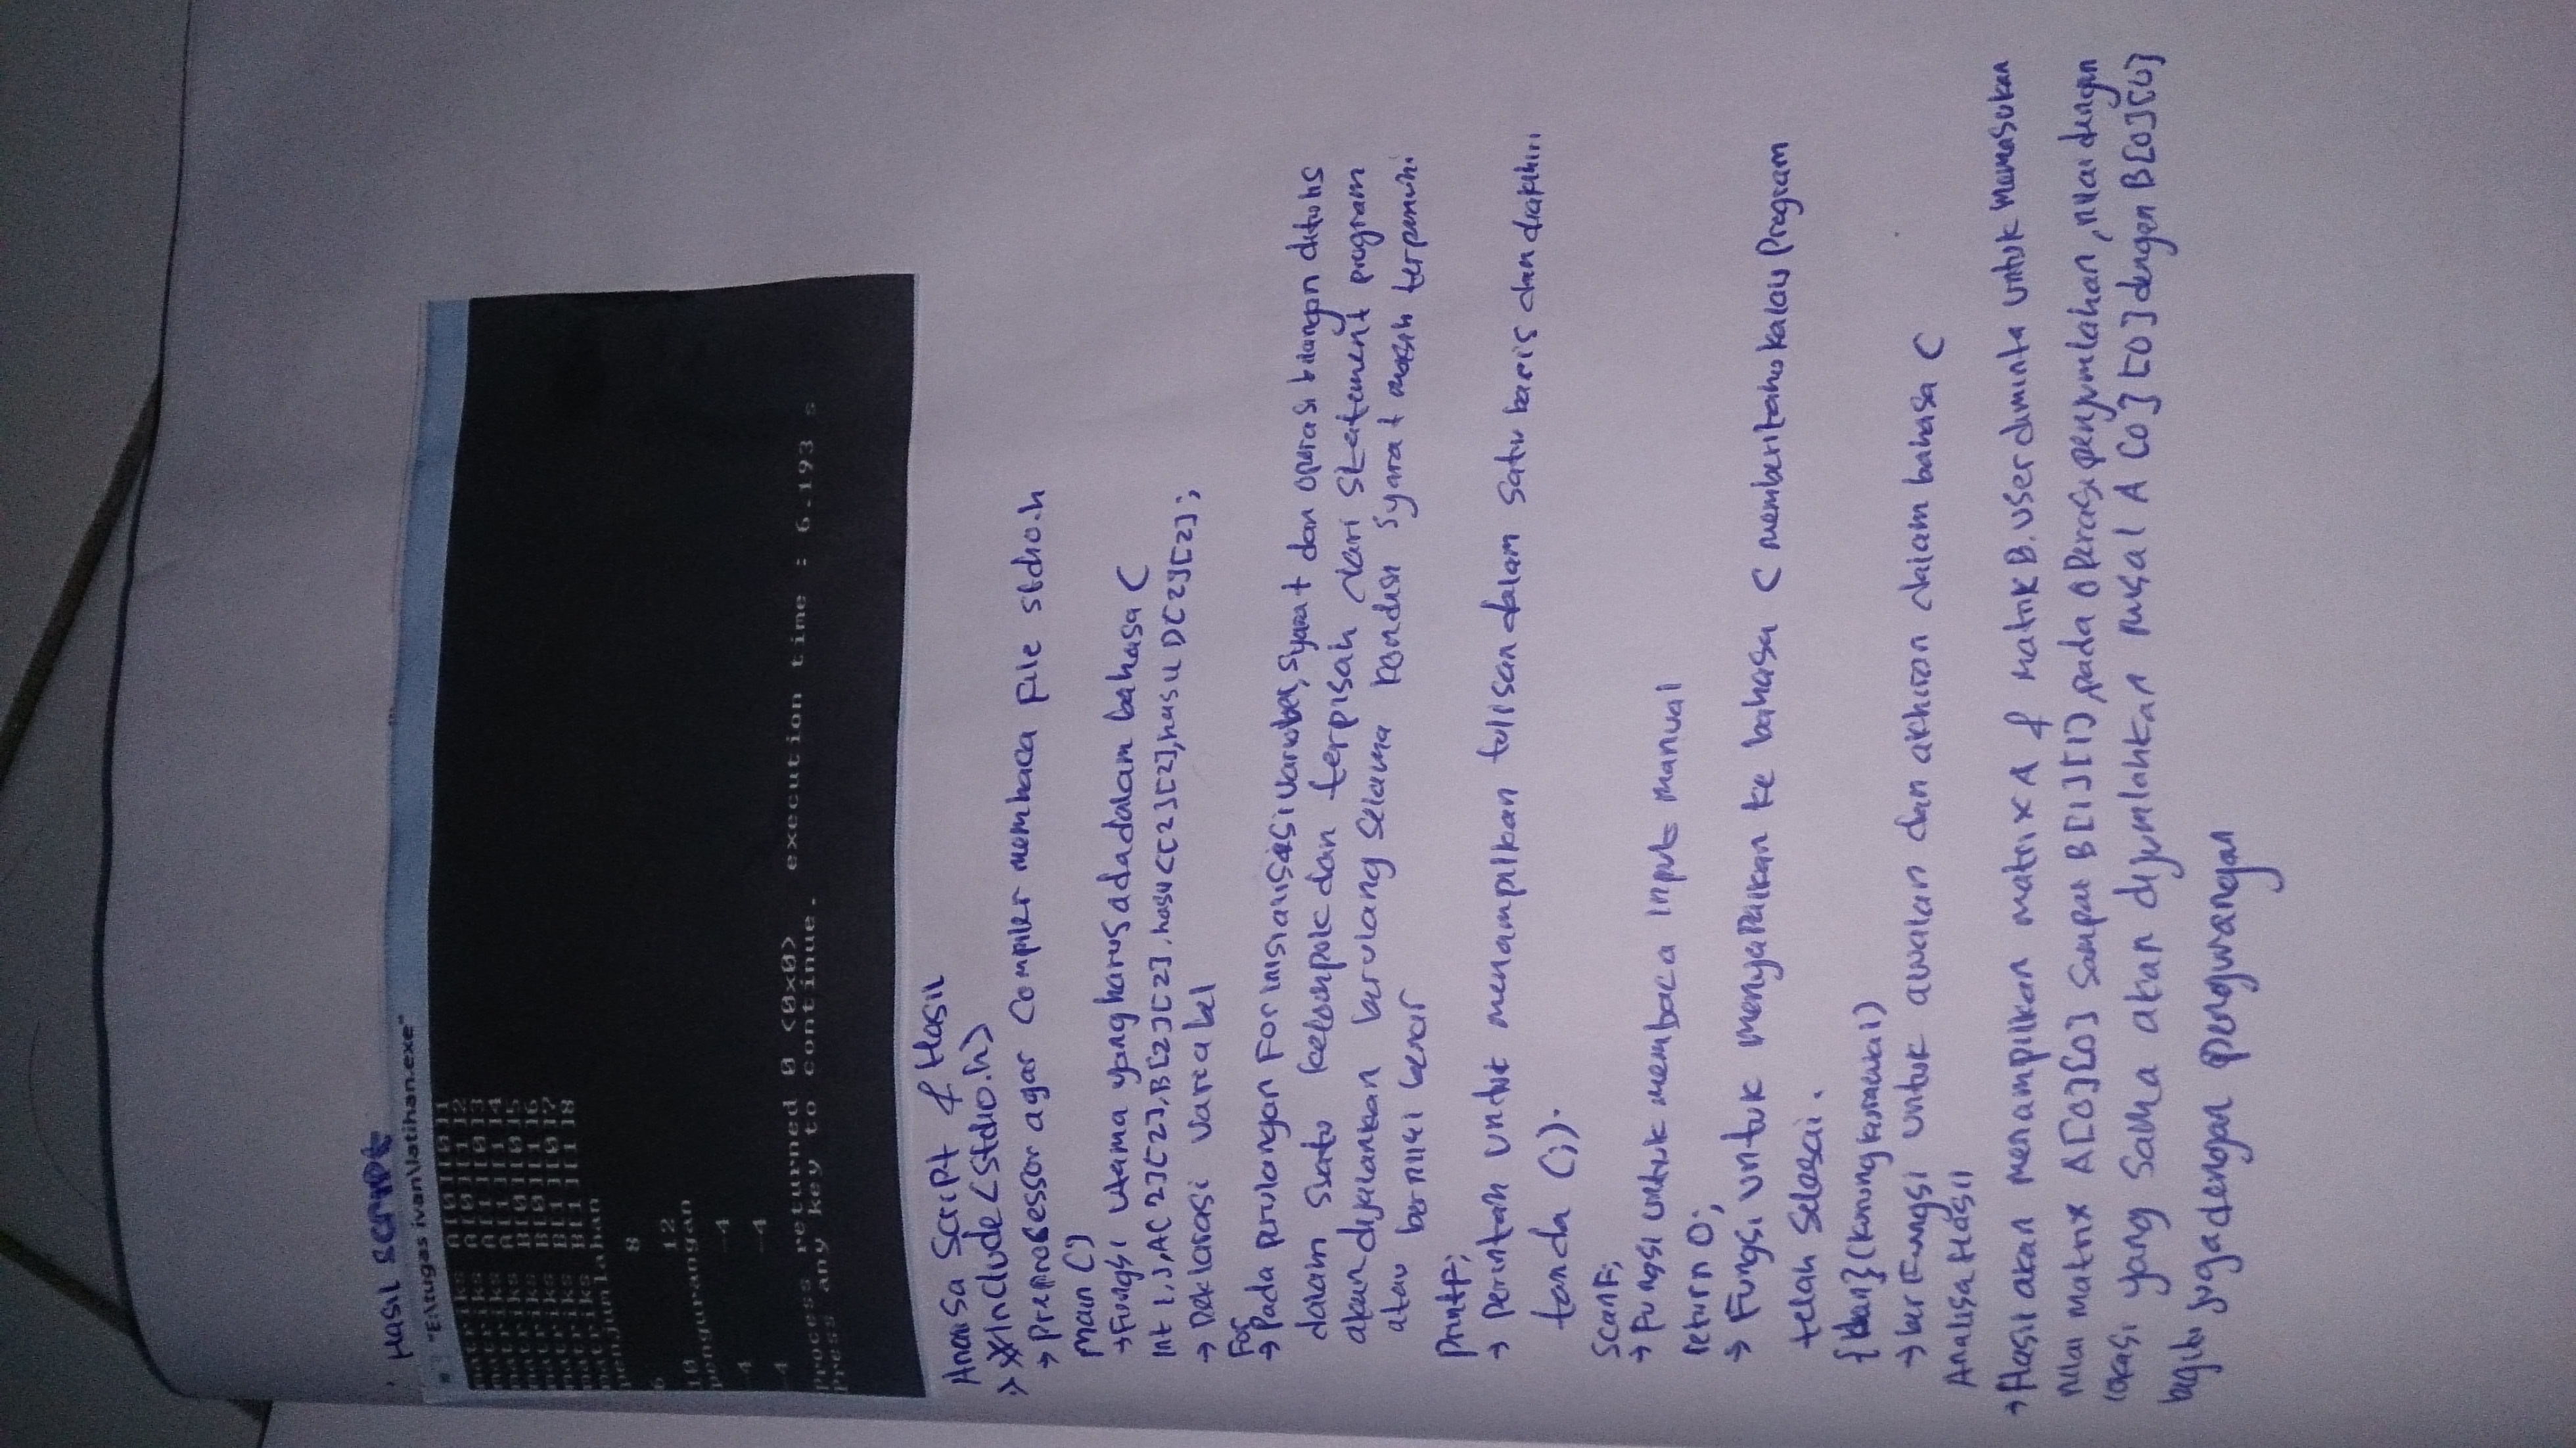 Hasil script
"E:\tugas ivan\latihan.exe"
matriks A[0][0]1
matriks A[0][1]2
matriks A[1][0]3
matriks A[1][1]4
matriks B[0][0]5
matriks B[0][1]6
matriks B[1][0]7
matriks B[1][1]8
penjumlahan
6 8
10 12
pengurangan
-4 -4
-4 -4
Process returned 0 (0x0) execution time : 6.193 s
Press any key to continue.
Analisa Script & Hasil
→ #Include <stdio.h>
→ Preprosessor agar Compiler membaca File stdio.h
main ()
→ Fungsi utama yang harus ada dadalam bahasa C
Int i,j,A[2][2],B[2][2],hasil C[2][2],hasil D[2][2];
→ Deklarasi Variabel
For
→ Pada perulangan For inisialisasi variabel, syarat dan operasi bilangan ditulis
dalam suatu kelompok dan terpisah dari statement program
akan dijalankan berulang selama kondisi syarat masih terpenuhi
atau bernilai benar
Printf;
→ Perintah untuk menampilkan tulisan dalam satu baris dan diakhiri
tanda (;).
Scanf;
→ Fungsi untuk membaca input manual
return 0;
→ Fungsi untuk menyampaikan ke bahasa C memberitahu kalau Program
telah selesai.
{dan} (kurung kurawal)
→ berfungsi untuk awalan dan akhiran dalam bahasa C
Analisa Hasil
→ Hasil akan menampilkan matrix A & matrik B. User diminta untuk memasukan
nilai matrix A[0][0] sampai B[1][1], pada operasi penjumlahan, nilai dengan
lokasi yang sama akan dijumlahkan misal A[0][0] dengan B[0][0]
begitu juga dengan pengurangan